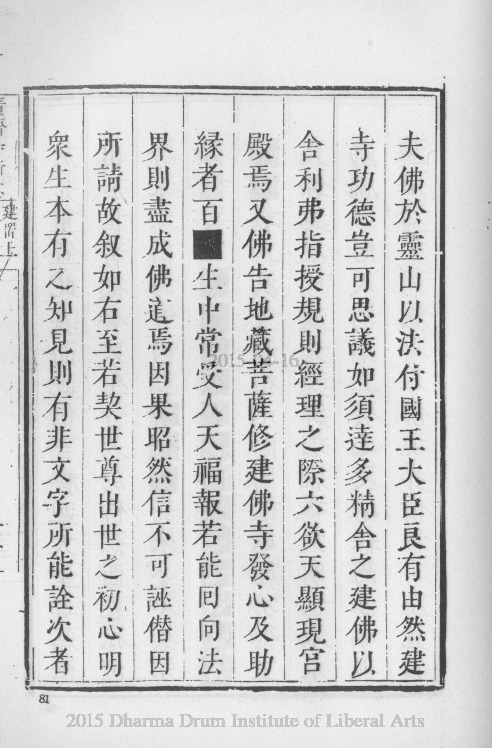 夫佛於靈山以法付國王大臣良有由然建
寺功德豈可思議如須達多精舍之建佛以
舍利弗指授規則經理之際六欲天顯現宮
殿焉又佛告地藏菩薩修建佛寺發心及助
緣者百■生中常受人天福報若能囘向法
界則盡成佛道焉因果昭然信不可誣僣因
所請故叙如右至若契世尊出世之初心明
衆生本有之知見則有非文字所能詮次者
建置上
81
2015 Dharma Drum Institute of Liberal Arts